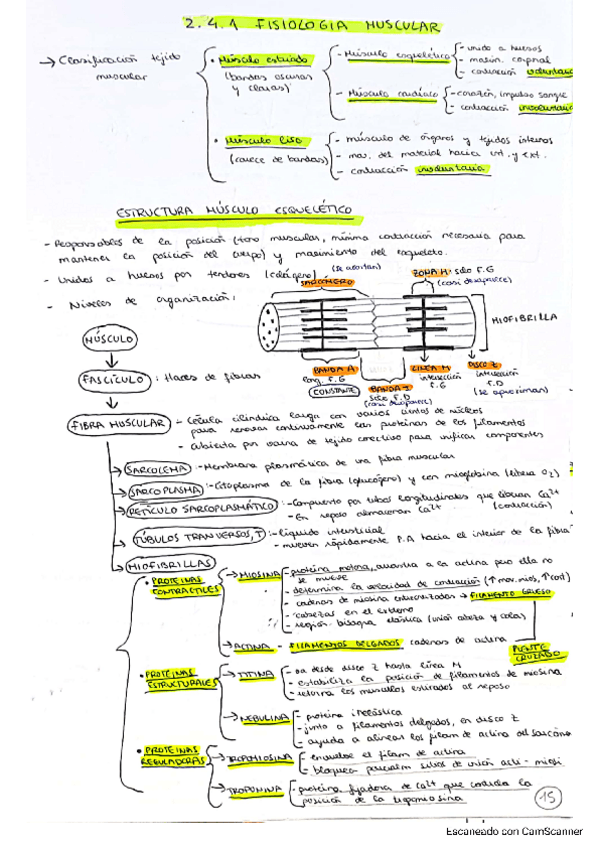 2.4.1 FISIOLOGIA MUSCULAR
→ Clasificación tejido muscular
• Músculo estriado (bandas oscuras y claras)
- Músculo esquelético
- unido a huesos
- masim. corporal
- contracción voluntaria
- Músculo cardíaco
- corazón, impulso sangre
- contracción involuntaria
• Músculo liso (carece de bandas)
- músculo de órganos y tejidos internos
- mov. del material hacia int. y ext.
- contracción involuntaria
ESTRUCTURA MÚSCULO ESQUELÉTICO
- Responsables de la posición (tono muscular, mínima contracción necesaria para
mantener la posición del cuerpo) y movimiento del esqueleto.
- Unidos a huesos por tendones (colágeno)
- Niveles de organización:
(se acortan)
SARCÓMERO
ZONA H: solo F.G
(casi desaparece)
MIOFIBRILLA
BANDA A
long. F.G
CONSTANTE
BANDA I
solo F.D
(casi desaparece)
LÍNEA M
intersección
F.G
DISCO Z
intersección
F.D
(se aproximan)
MÚSCULO
FASCÍCULO : Haces de fibras
FIBRA MUSCULAR
- Célula cilíndrica larga con varios cientos de núcleos
para renovar continuamente las proteínas de los filamentos
- cubierta por vaina de tejido conectivo para unificar componentes
SARCOLEMA :- Membrana plasmática de una fibra muscular
SARCOPLASMA :- Citoplasma de la fibra (glucógeno) y con mioglobina (libera O2)
RETÍCULO SARCOPLASMÁTICO :- Compuesto por tubos longitudinales que liberan Ca2+
- En reposo almacenan Ca2+ (contracción)
TÚBULOS TRANVERSOS, T :- líquido intersticial
- mueven rápidamente P.A hacia el interior de la fibra
MIOFIBRILLAS
• PROTEINAS CONTRACTILES
→ MIOSINA
- proteína motora, arrastra a la actina pero ella no
se mueve
- determina la velocidad de contracción
- cadenas de miosina entrecruzadas → FILAMENTO GRUESO
- cabezas en el extremo
- región bisagra elástica (unión cabeza y cola)
→ ACTINA - FILAMENTOS DELGADOS cadenas de actina
PUENTE CRUZADO
• PROTEINAS ESTRUCTURALES
→ TITINA
- va desde disco Z hasta línea M
- estabiliza la posición de filamentos de miosina
- retorna los músculos estirados al reposo
→ NEBULINA
- proteína inelástica
- junto a filamentos delgados, en disco Z
- ayuda a alinear los filam de actina del sarcóme
• PROTEINAS REGULADORAS
→ TROPOMIOSINA
- envuelve el filam de actina
- bloquea parcialm sitios de unión acti - miosi
→ TROPONINA
- proteína fijadora de Ca2+ que controla la
posición de la tropomiosina
15
Escaneado con CamScanner